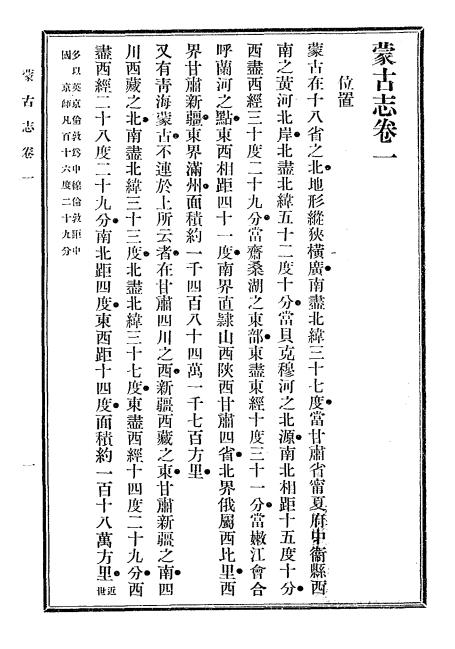 蒙古志卷一
位置
蒙古在十八省之北地形縱狹橫廣南盡北緯三十七度當甘肅省甯夏府中衞縣西
南之黃河北岸北盡北緯五十二度十分當貝克穆河之北源南北相距十五度十分
西盡西經三十度二十九分當齋桑湖之東部東盡東經十度三十一分當嫩江會合
呼蘭河之點東西相距四十一度南界直隸山西陝西甘肅四省北界俄屬西比里西
界甘肅新疆東界滿州面積約一千四百八十四萬一千七百方里
又有靑海蒙古不連於上所云者在甘肅四川之西新疆西藏之東甘肅新疆之南四
川西藏之北南盡北緯三十三度北盡北緯三十七度東盡西經十四度二十九分西
盡西經二十八度二十九分南北距四度東西距十四度面積約一百十八萬方里近世
多以英京倫敦爲中線倫敦距中
國京師凡百十六度二十九分
蒙古志卷一
一